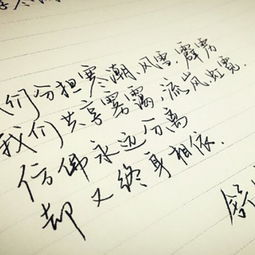 们分担寒潮、风雷、霹雳
我们共享雾霭、流岚、虹霓.
仿佛永远分离
却又终身相依.
舒